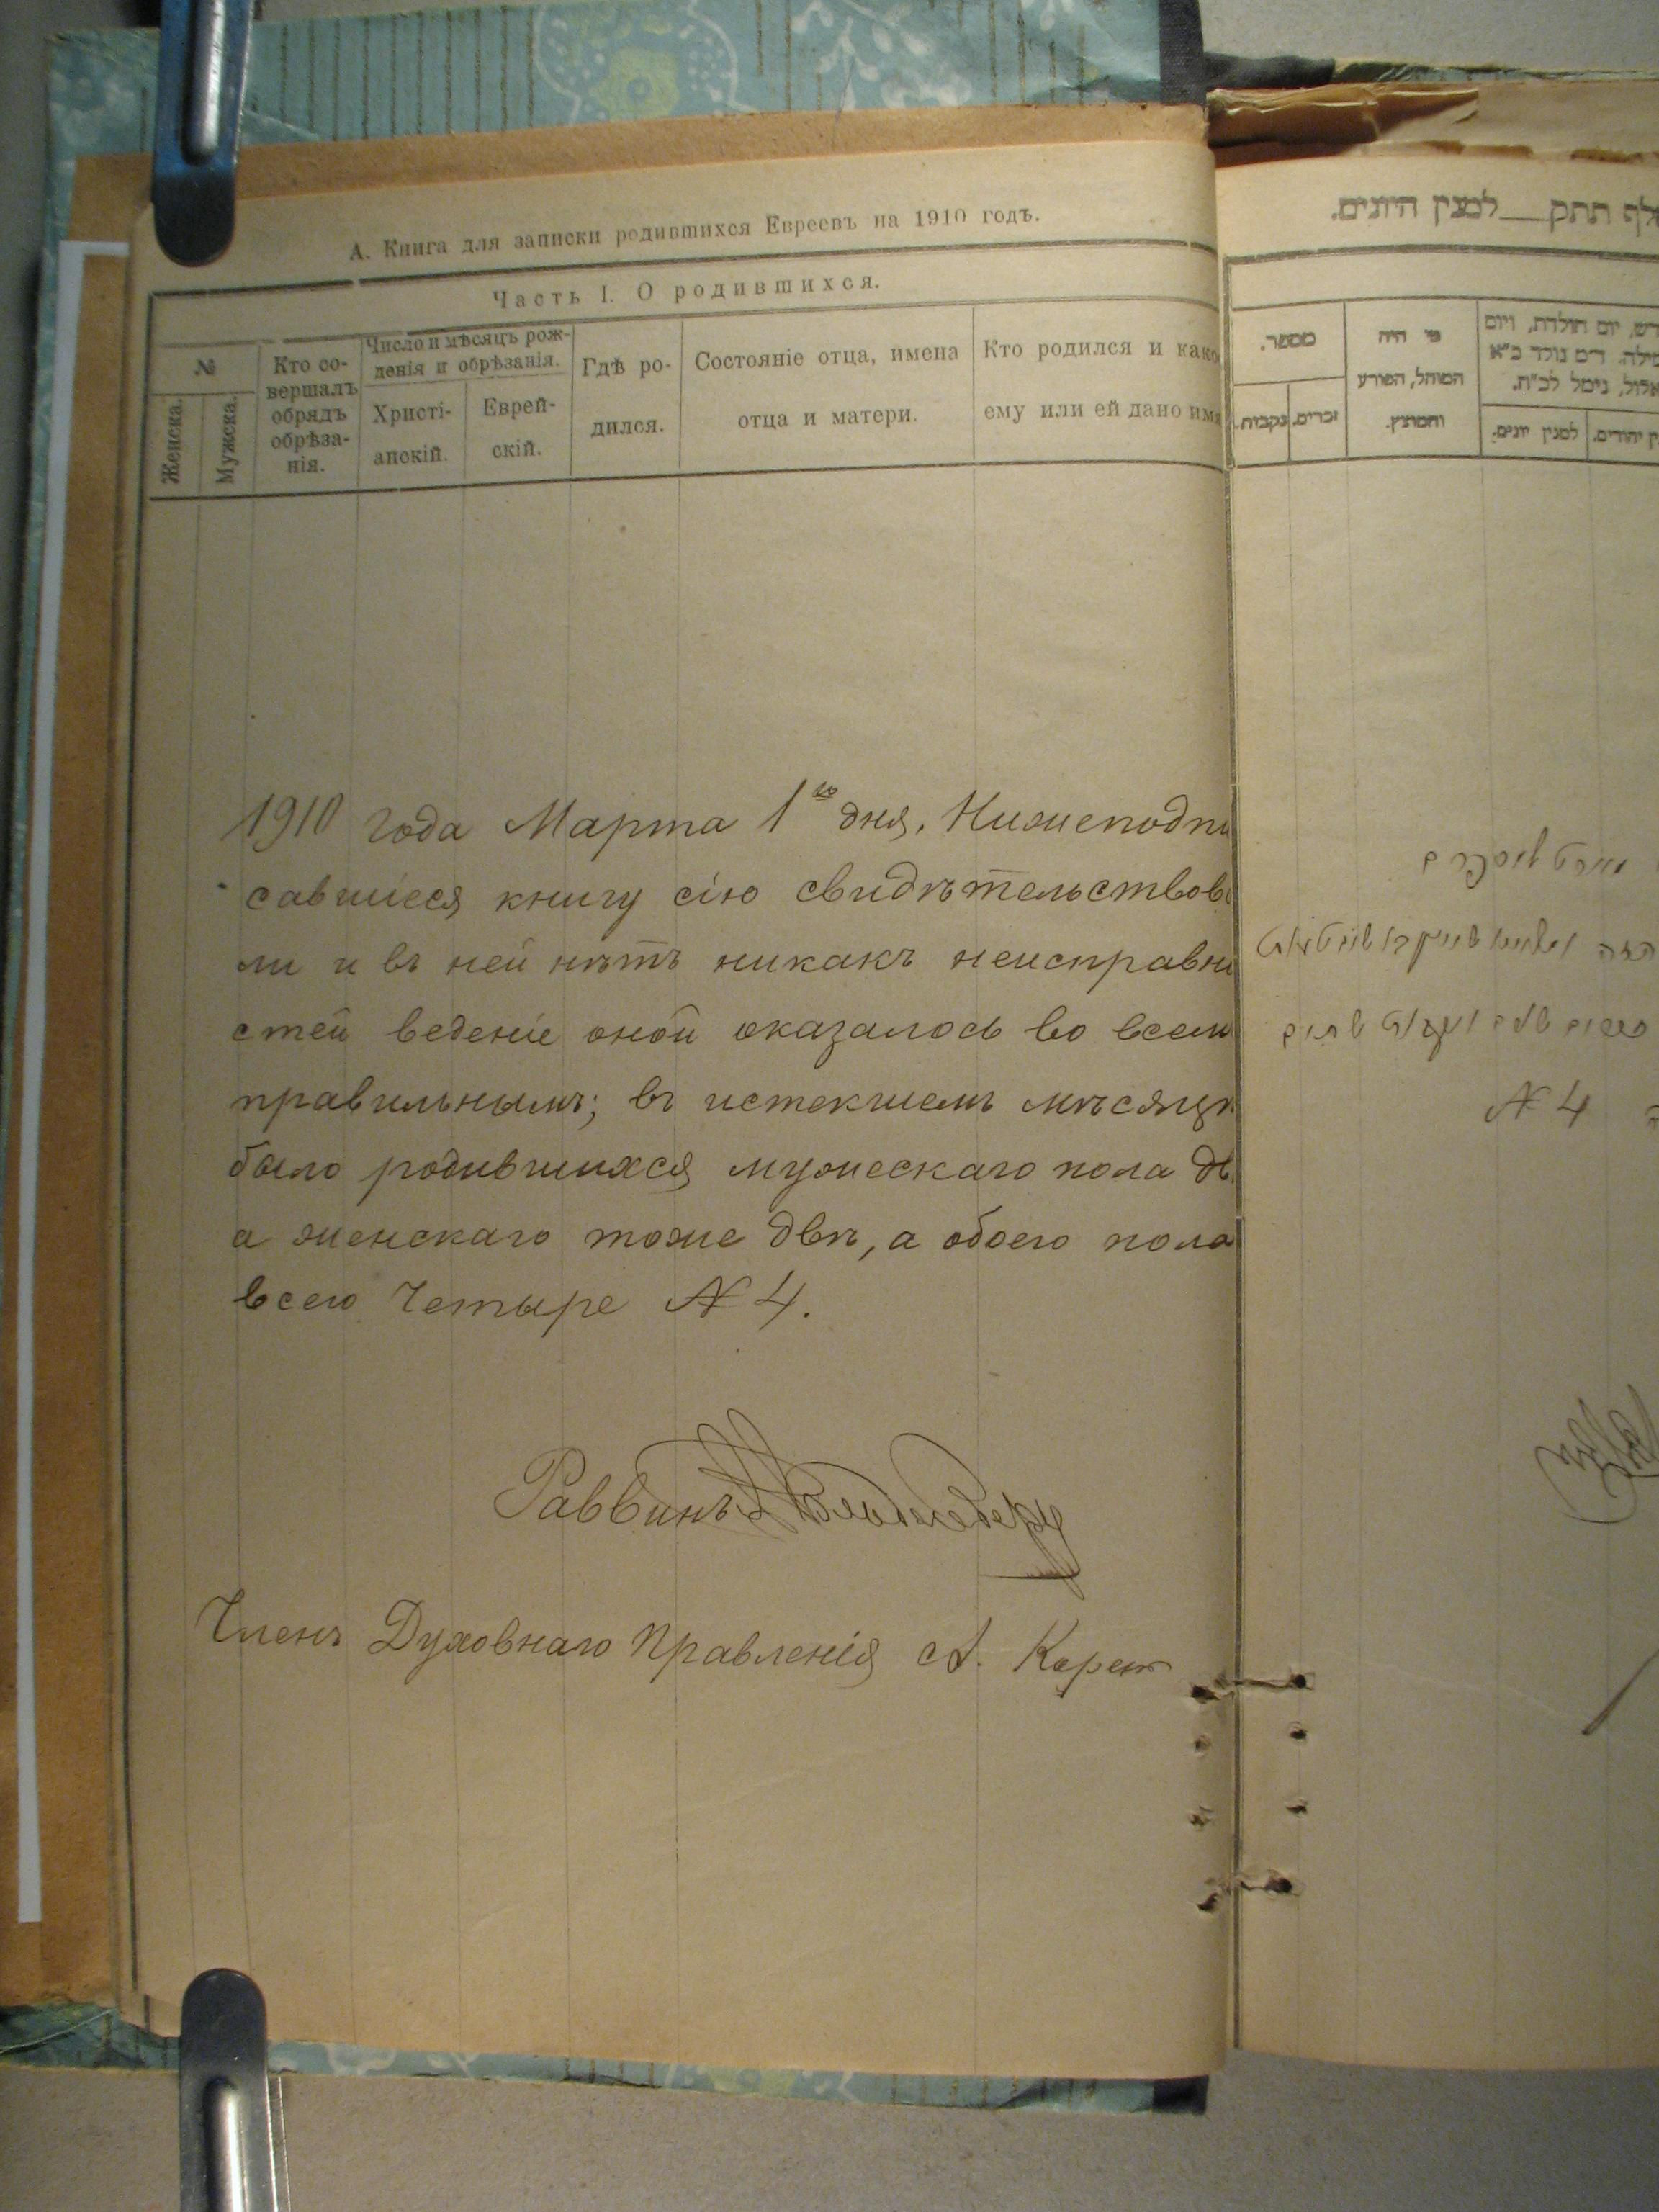 А. Книга для записки родившихся Евреевъ на 1910 годъ.
Часть I. О родившихся.
№
Женска.
Мужска.
Кто со-
вершалъ
обрядъ
обрѣза-
нія.
Число и мѣсяцъ рож-
денія и обрѣзанія.
Христі-
анскій.
Еврей-
скій.
Гдѣ ро-
дился.
Состояніе отца, имена
отца и матери.
Кто родился и како
ему или ей дано имя
1910 года Марта 1го дня, Нижеподпи
савшіеся книгу сію свидѣтельствова
ли и въ ней нѣтъ никакъ неисправно
стей веденіе оной оказалось во всем
правильнымъ; въ истекшемъ мѣсяцѣ
было родившихся мужескаго пола дв
а женскаго тоже двѣ, а обоего пола
всего Четыре № 4.
Раввинъ
Членъ Духовнаго Правленія А.
לף תתק למנין היונים.
מספר.
זכרים.
נקבות.
מי היה
המוהל, הפורע
והמוצץ.
דש, יום תולדת, ויום
מילה. ד״מ נולד כ״א
אלול, נימל לכ״ח.
למנין יונים.
ין יהודים.
№ 4